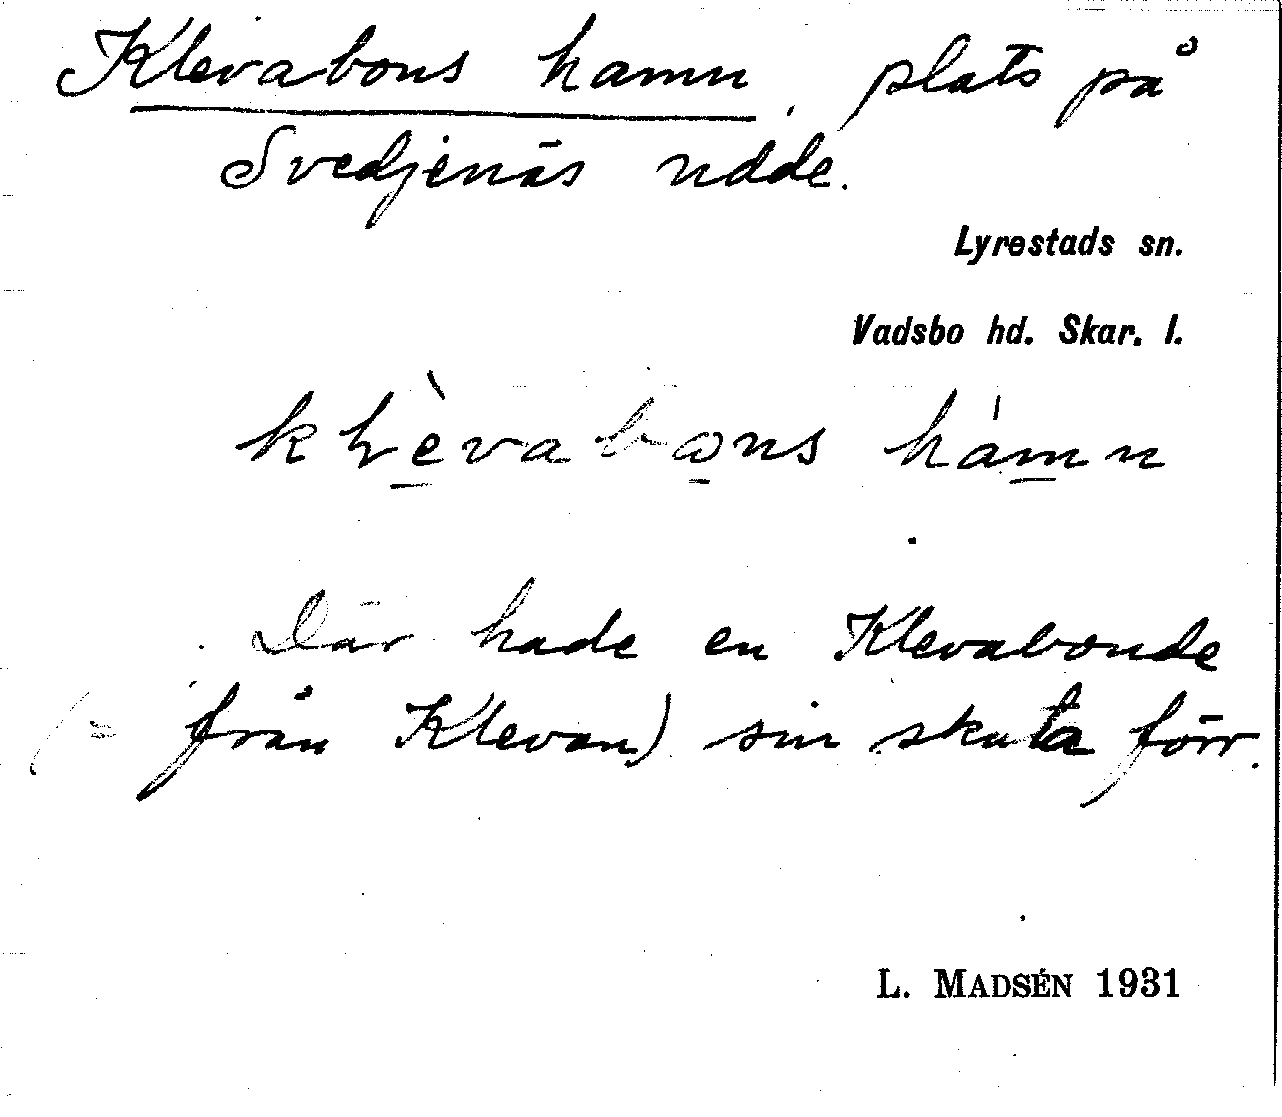 Klevabons hamn, plats på
Svedjenäs udde.
Lyrestads sn.
Vadsbo hd. Skar. l.
klèvabons hámn
Där hade en Klevabonde
(= från Klevan) sin skuta förr.
L. MADSÉN 1931